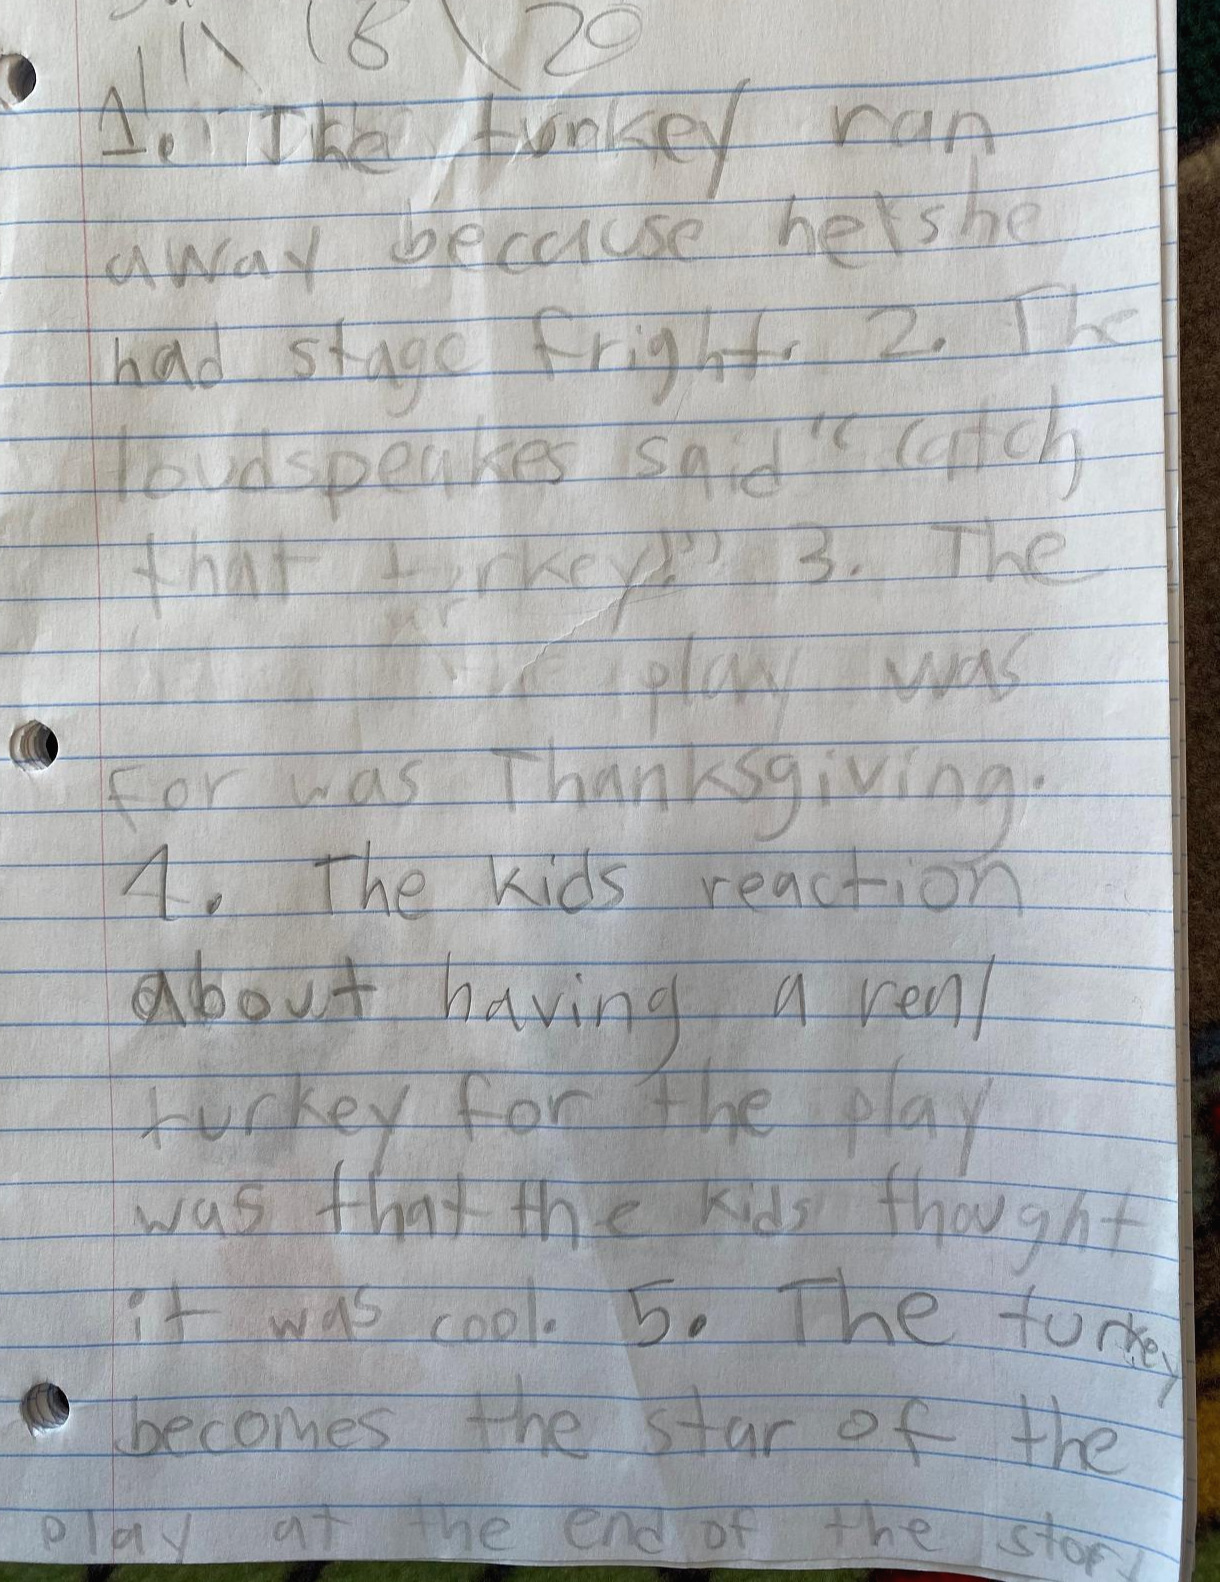 11\18\20
1. The turkey ran
away because he\she
had stage fright. 2. The
loudspeakes said "Catch
that turkey!" 3. The
play was
for was Thanksgiving.
4. The kids reaction
about having a real
turkey for the play
was that the kids thought
it was cool. 5. The turkey
becomes the star of the
play at the end of the story